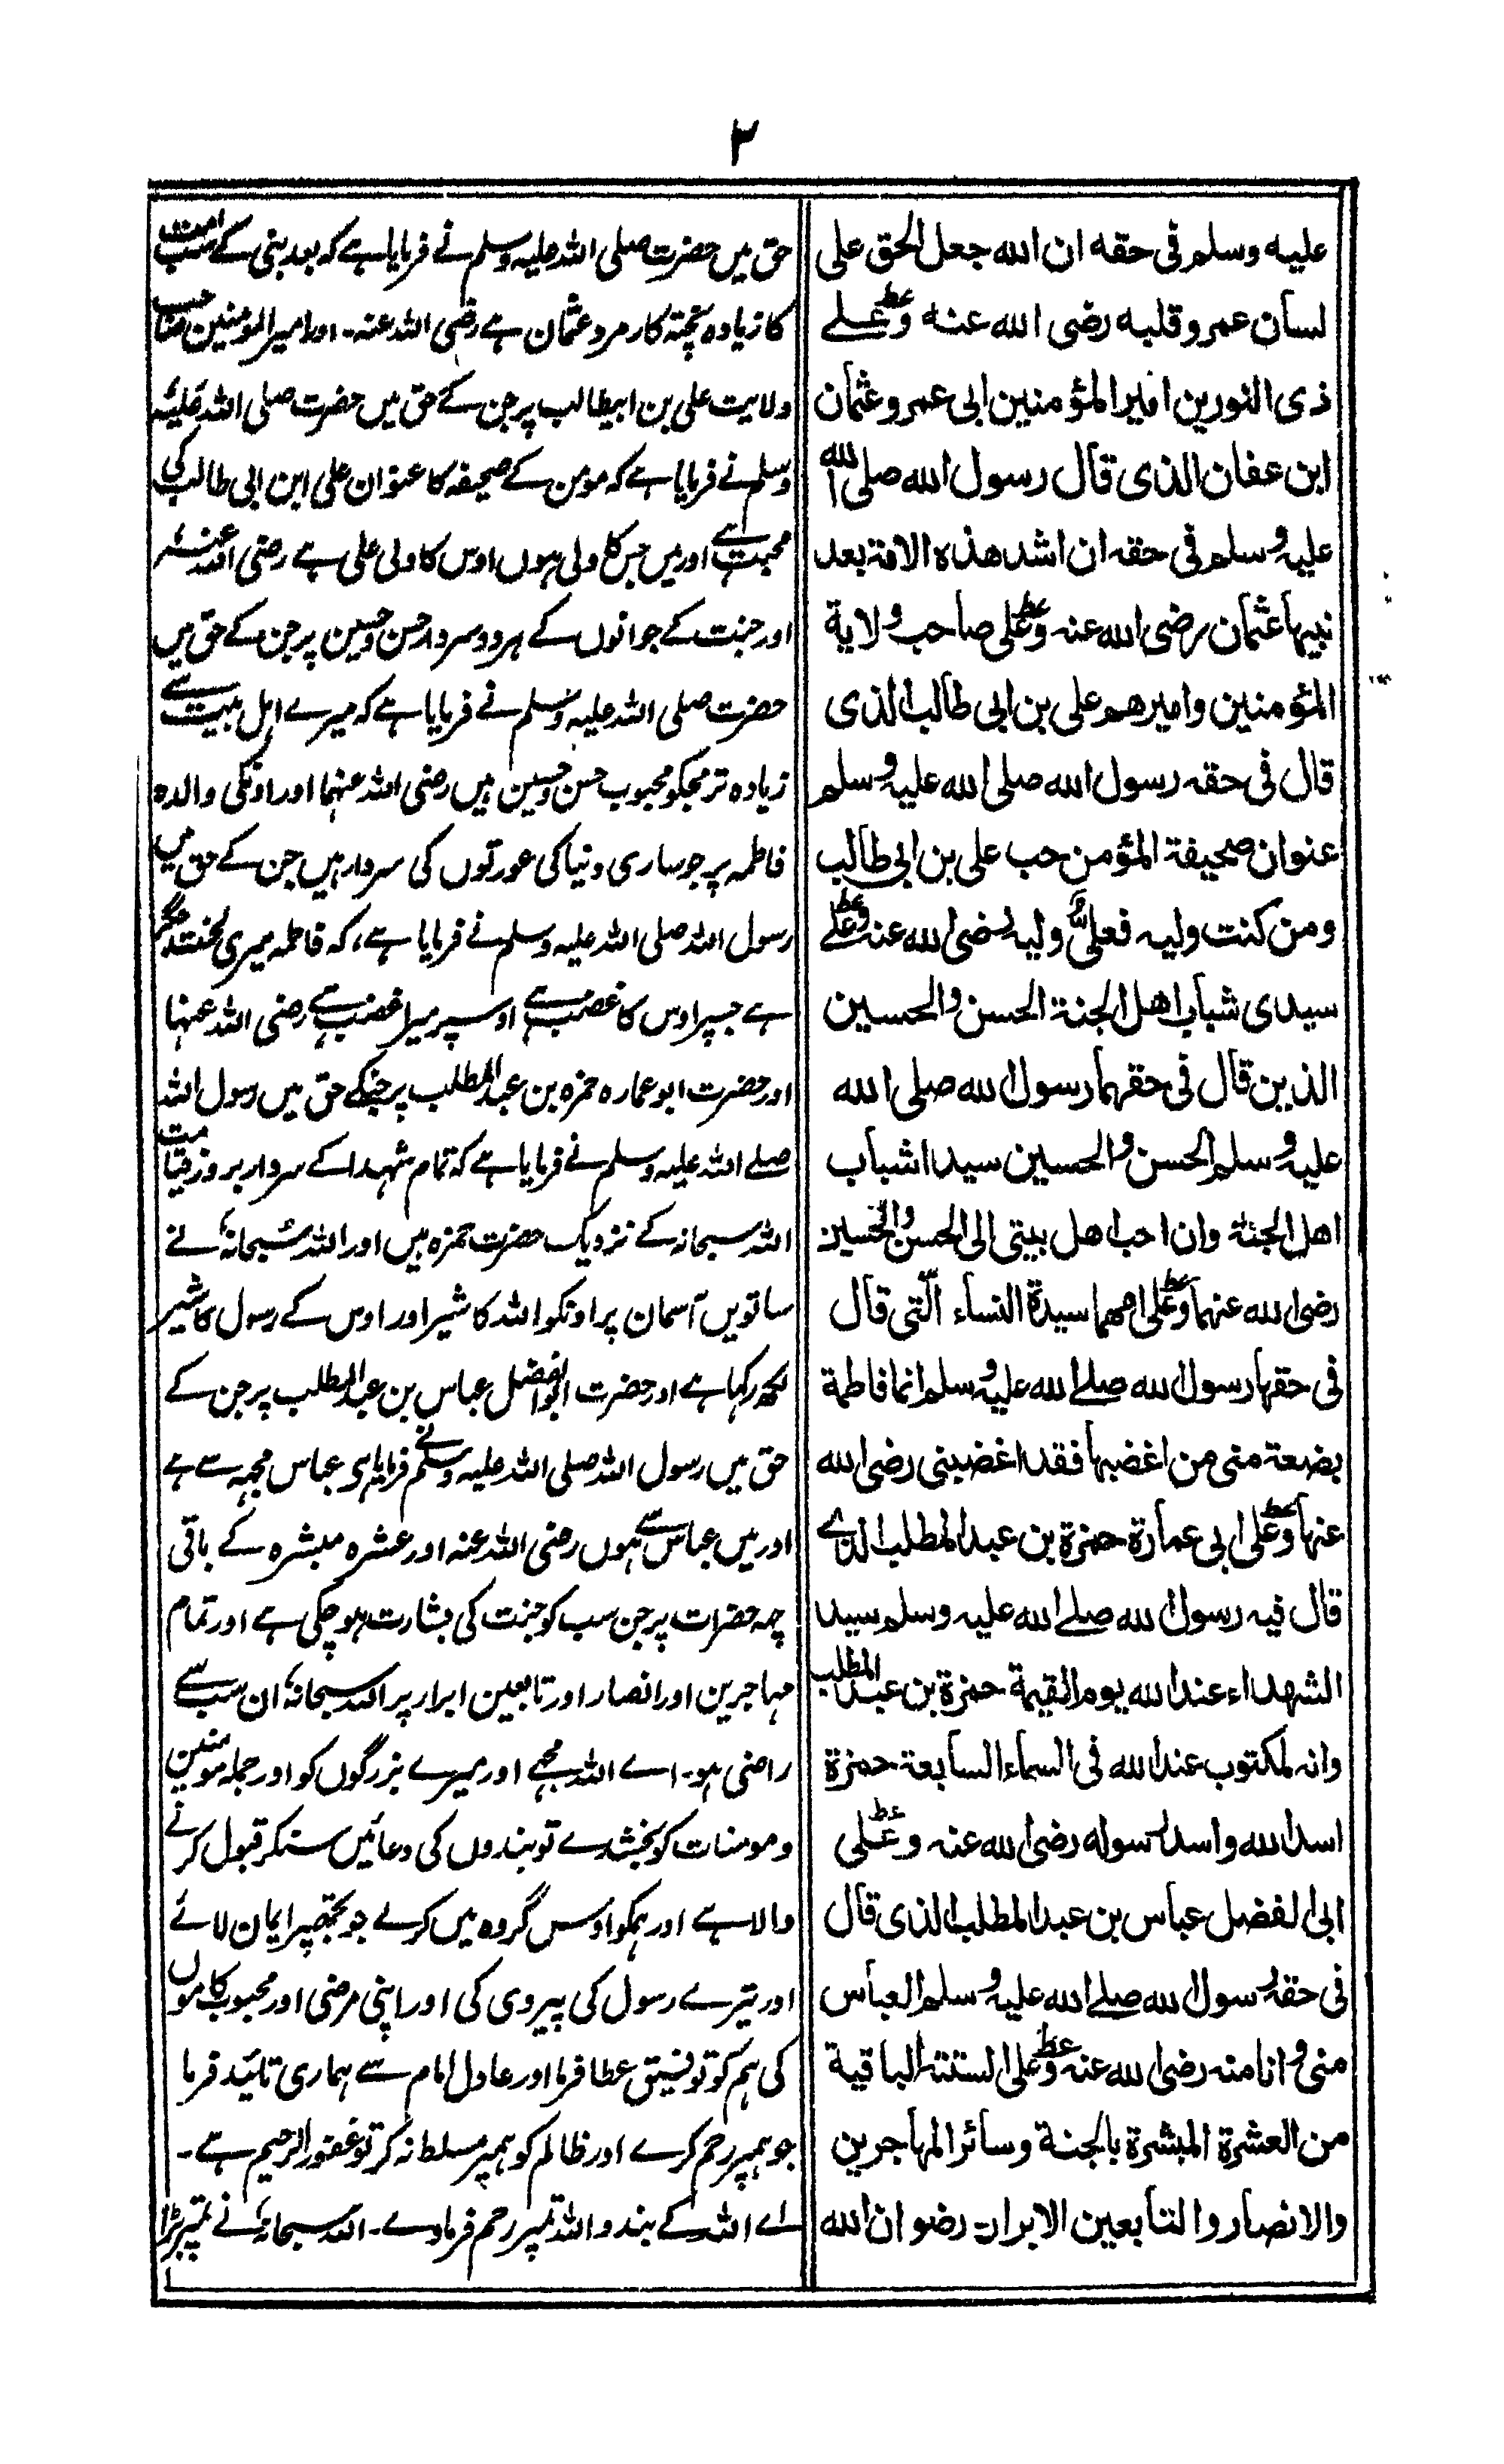 ٣
عليه وسلم فى حقه ان الله جعل الحق على
لسان عمر وقلبه رضى الله عنه وعلے
ذى النورين امير المؤمنين ابى عمرو عثمان
ابن عفان الذى قال رسول الله صلى الله
عليه وسلم فى حقه ان اشد هذه الامة بعد
نبيها عثمان رضى الله عنه وعلى صاحب ولاية
المؤمنين واميرهم على بن ابى طالب الذى
قال فى حقه رسول الله صلى الله عليه وسلم
عنوان صحيفة المؤمن حب على بن ابى طالب
ومن كنت وليه فعلىٌّ وليه رضى الله عنه وعلے
سيدى شباب اهل الجنة الحسن والحسين
الذين قال فى حقهما رسول الله صلى الله
عليه وسلم الحسن والحسين سيدا شباب
اهل الجنة وان احب اهل بيتى الى الحسن والحسين
رضى الله عنهما وعلى امهما سيدة النساء الّتى قال
فى حقها رسول الله صلے الله عليه وسلم انما فاطمة
بضعة منى من اغضبها فقد اغضبنى رضى الله
عنها وعلى ابى عمارة حمزة بن عبد المطلب الذے
قال فيه رسول الله صلے الله عليه وسلم سيد
الشهداء عند الله يوم القيمة حمزة بن عبد المطلب
وانه لمكتوب عند الله فى السماء السابعة حمزة
اسد الله واسد رسوله رضى الله عنه وعلى
ابى الفضل عباس بن عبد المطلب الذى قال
فى حقه رسول الله صلے الله عليه وسلم العباس
منى وانا منه رضى الله عنه وعلى الستة الباقية
من العشرة المبشرة بالجنة وسائر المهاجرين
والانصار والتابعين الابرار رضوان الله
حق میں حضرت صلی اللہ علیہ وسلم نے فرمایا ہے کہ بعد نبی کے امت
کا زیادہ پختہ کار مرد عثمان ہے رضی اللہ عنہ۔ اور امیر المومنین صاحب
ولایت علی بن ابیطالب پر جن کے حق میں حضرت صلی اللہ علیہ
وسلم نے فرمایا ہے کہ مومن کے صحیفہ کا عنوان علی ابن ابی طالب کی
محبت ہے اور میں جس کا ولی ہوں اوس کا ولی علی ہے رضی اللہ عنہ
اور جنت کے جوانوں کے ہر دو سردار حسن و حسین پر جن کے حق میں
حضرت صلی اللہ علیہ وسلم نے فرمایا ہے کہ میرے اہل بیت سے
زیادہ تر مجکو محبوب حسن و حسین ہیں رضی اللہ عنہما اور اونکی والدہ
فاطمہ پر جو ساری دنیا کی عورتوں کی سردار ہیں جن کے حق میں
رسول اللہ صلی اللہ علیہ وسلم نے فرمایا ہے، کہ فاطمہ میری لخت جگر
ہے جسپر اوس کا غضب ہے اوسپر میرا غضب ہے رضی اللہ عنہا
اور حضرت ابو عمارہ حمزہ بن عبد المطلب پر جنکے حق میں رسول اللہ
صلے اللہ علیہ وسلم نے فرمایا ہے کہ تمام شہدا کے سردار بروز قیامت
اللہ سبحانہ کے نزدیک حضرت حمزہ ہیں اور اللہ سبحانہ نے
ساتویں آسمان پر اونکو اللہ کا شیر اور اوس کے رسول کا شیر
لکھ رکہا ہے اور حضرت ابو الفضل عباس بن عبد المطلب پر جن کے
حق میں رسول اللہ صلی اللہ علیہ وسلم نے فرمایا ہی عباس مجہہ سے ہے
اور میں عباس سے ہوں رضی اللہ عنہ اور عشرہ مبشرہ کے باقی
چہہ حضرات پر جن سب کو جنت کی بشارت ہو چکی ہے اور تمام
مہاجرین اور انصار اور تابعین ابرار پر اللہ سبحانہ ان سب سے
راضی ہو۔ اے اللہ مجہے اور میرے بزرگوں کو اور جملہ مومنین
و مومنات کو بخشدے تو بندوں کی دعائیں سنکر قبول کرنے
والا ہے اور ہمکو اوس گروہ میں کر لے جو تجھپر ایمان لائے
اور تیرے رسول کی پیروی کی اور اپنی مرضی اور محبوب کاموں
کی ہم کو توفیق عطا فرما اور عادل امام سے ہماری تائید فرما
جو ہمپر رحم کرے اور ظالم کو ہمپر مسلط نہ کر تو غفور الرحیم ہے۔
اے اللہ کے بندو اللہ تمپر رحم فرماوے۔ اللہ سبحانہ نے تمپر بڑا